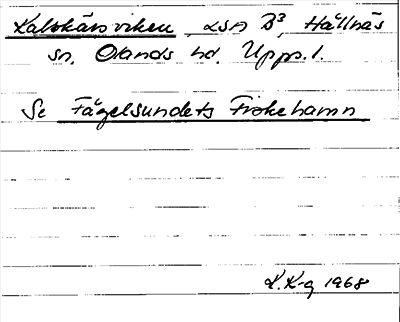 Kalvskärsviken LSA B³, Hållnäs
sn. Olands hd. Upps. l.
Se Fågelsundets Fiskehamn
L. K-g 1968